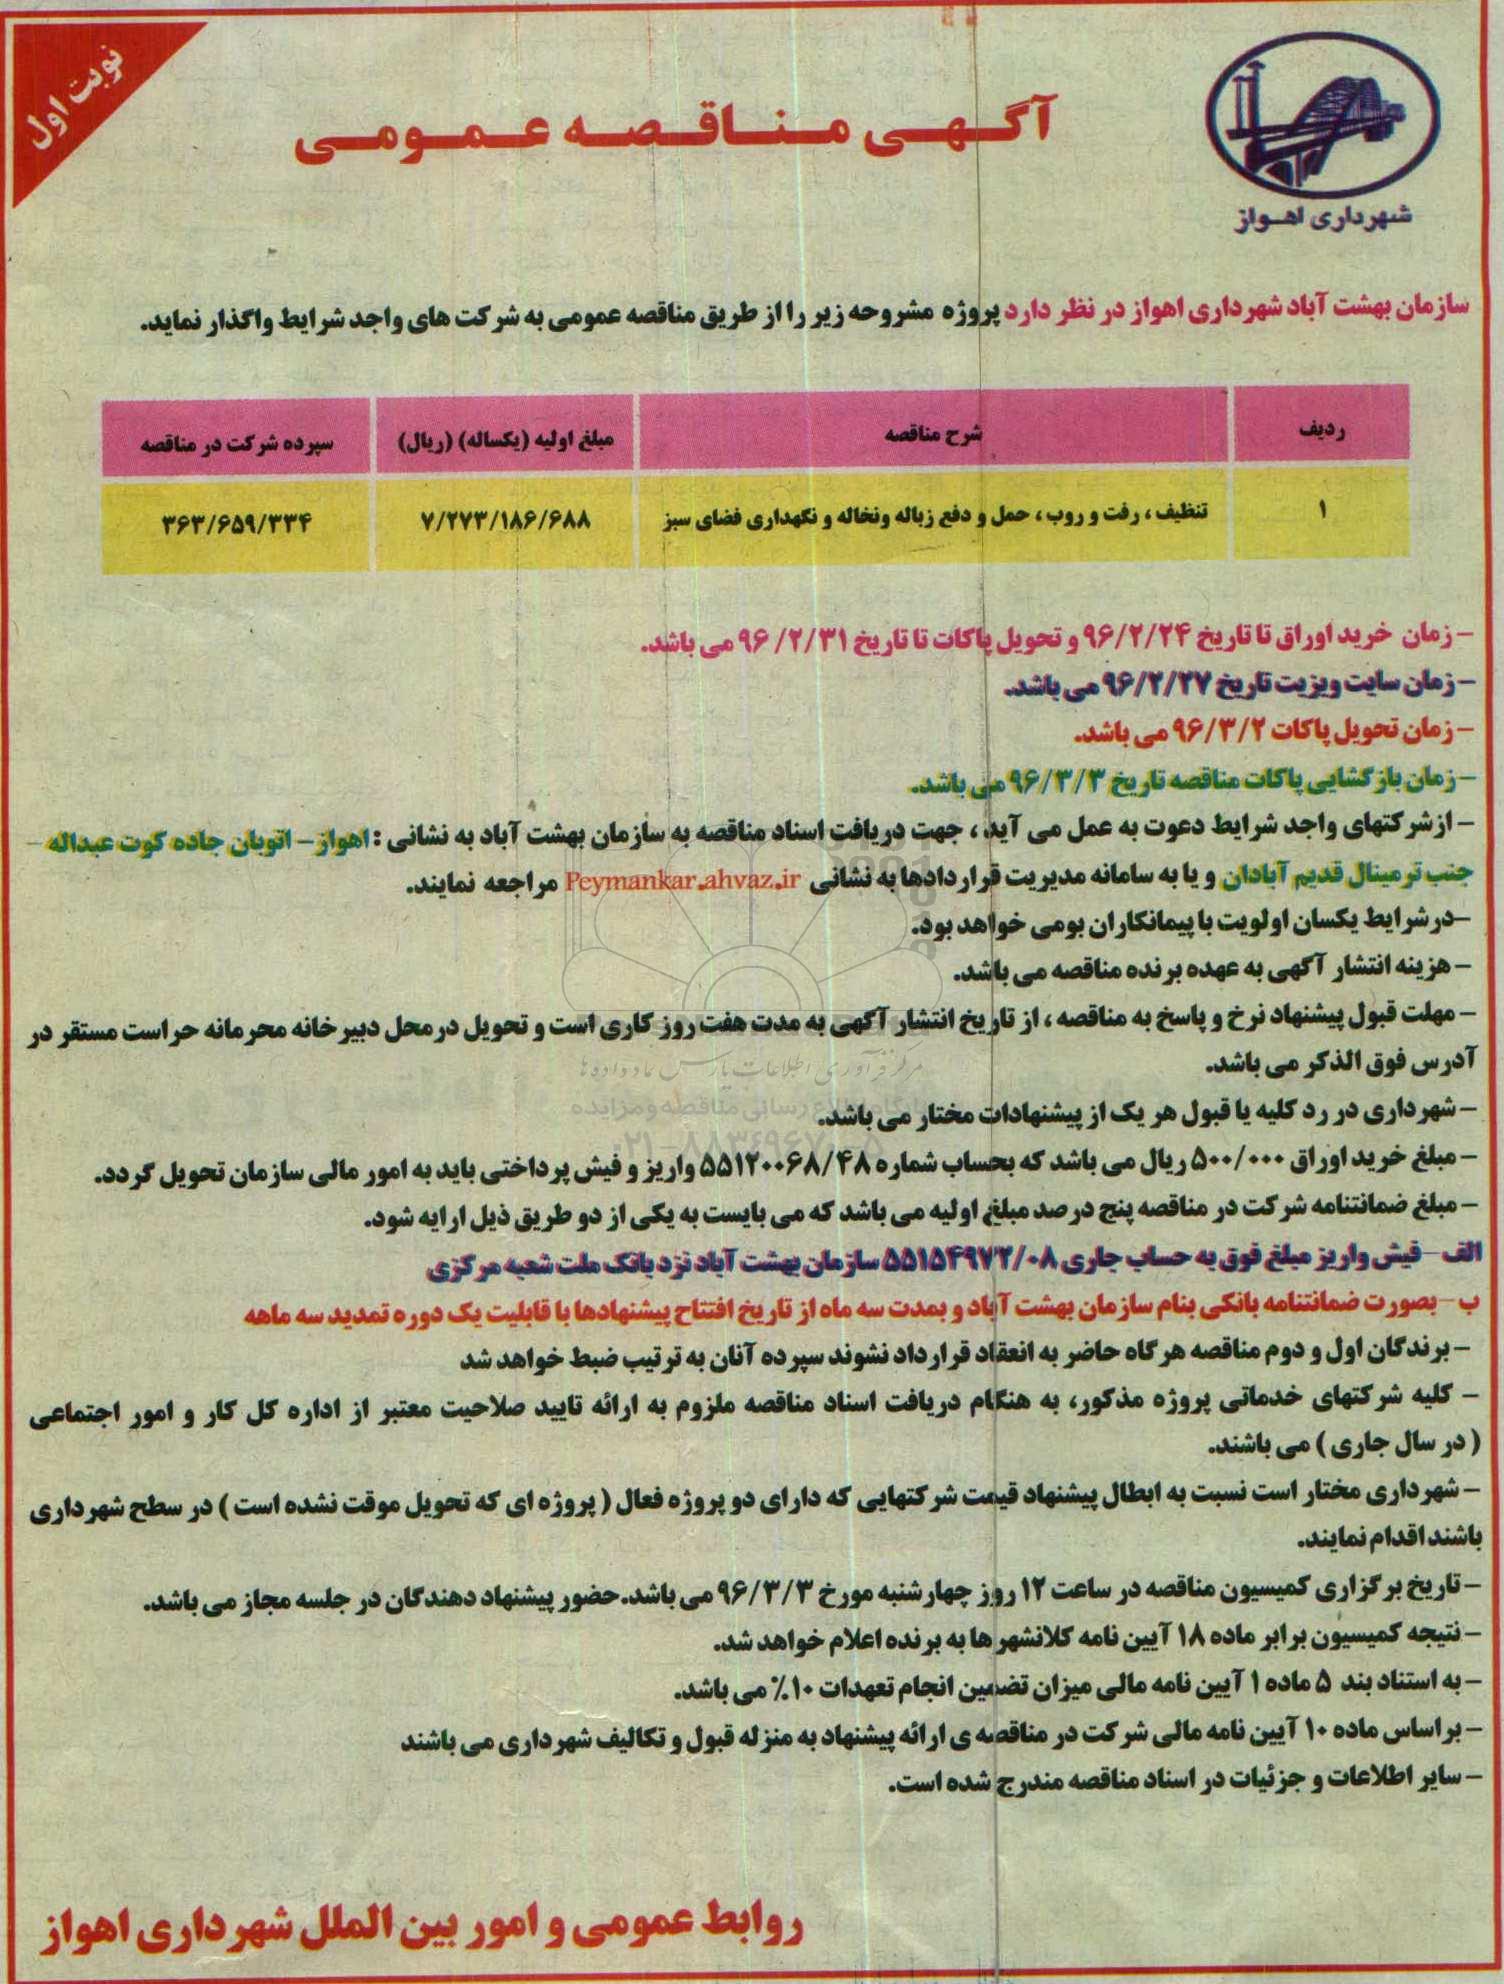 نوبت اول
آگهی مناقصه عمومی
شهرداری اهواز
سازمان بهشت آباد شهرداری اهواز در نظر دارد پروژه مشروحه زیر را از طریق مناقصه عمومی به شرکت های واجد شرایط واگذار نماید.
ردیف شرح مناقصه مبلغ اولیه (یکساله) (ریال) سپرده شرکت در مناقصه
۱ تنظیف ، رفت و روب ، حمل و دفع زباله ونخاله و نگهداری فضای سبز ۷/۲۷۳/۱۸۶/۶۸۸ ۳۶۳/۶۵۹/۳۳۴
- زمان خرید اوراق تا تاریخ ۹۶/۲/۲۴ و تحویل پاکات تا تاریخ ۹۶/۲/۳۱ می باشد.
- زمان سایت ویزیت تاریخ ۹۶/۲/۲۷ می باشد.
- زمان تحویل پاکات ۹۶/۳/۲ می باشد.
- زمان بازگشایی پاکات مناقصه تاریخ ۹۶/۳/۳ می باشد.
- ازشرکتهای واجد شرایط دعوت به عمل می آید ، جهت دریافت اسناد مناقصه به سازمان بهشت آباد به نشانی : اهواز - اتوبان جاده کوت عبداله -
جنب ترمینال قدیم آبادان و یا به سامانه مدیریت قراردادها به نشانی Peymankar.ahvaz.ir مراجعه نمایند.
-درشرایط یکسان اولویت با پیمانکاران بومی خواهد بود.
- هزینه انتشار آگهی به عهده برنده مناقصه می باشد.
- مهلت قبول پیشنهاد نرخ و پاسخ به مناقصه ، از تاریخ انتشار آگهی به مدت هفت روز کاری است و تحویل درمحل دبیرخانه محرمانه حراست مستقر در
آدرس فوق الذکر می باشد.
- شهرداری در رد کلیه یا قبول هر یک از پیشنهادات مختار می باشد.
- مبلغ خرید اوراق ۵۰۰/۰۰۰ ریال می باشد که بحساب شماره ۵۵۱۲۰۰۶۸/۴۸ واریز و فیش پرداختی باید به امور مالی سازمان تحویل گردد.
- مبلغ ضمانتنامه شرکت در مناقصه پنج درصد مبلغ اولیه می باشد که می بایست به یکی از دو طریق ذیل ارایه شود.
الف - فیش واریز مبلغ فوق به حساب جاری ۵۵۱۵۴۹۷۲/۰۸ سازمان بهشت آباد نزد بانک ملت شعبه مرکزی
ب - بصورت ضمانتنامه بانکی بنام سازمان بهشت آباد و بمدت سه ماه از تاریخ افتتاح پیشنهادها با قابلیت یک دوره تمدید سه ماهه
- برندگان اول و دوم مناقصه هرگاه حاضر به انعقاد قرارداد نشوند سپرده آنان به ترتیب ضبط خواهد شد
- کلیه شرکتهای خدماتی پروژه مذکور، به هنگام دریافت اسناد مناقصه ملزوم به ارائه تایید صلاحیت معتبر از اداره کل کار و امور اجتماعی
( در سال جاری ) می باشند.
- شهرداری مختار است نسبت به ابطال پیشنهاد قیمت شرکتهایی که دارای دو پروژه فعال ( پروژه ای که تحویل موقت نشده است ) در سطح شهرداری
باشند اقدام نمایند.
- تاریخ برگزاری کمیسیون مناقصه در ساعت ۱۲ روز چهارشنبه مورخ ۹۶/۳/۳ می باشد.حضور پیشنهاد دهندگان در جلسه مجاز می باشد.
- نتیجه کمیسیون برابر ماده ۱۸ آیین نامه کلانشهرها به برنده اعلام خواهد شد.
- به استناد بند ۵ ماده ۱ آیین نامه مالی میزان تضمین انجام تعهدات ۱۰٪ می باشد.
- براساس ماده ۱۰ آیین نامه مالی شرکت در مناقصه ی ارائه پیشنهاد به منزله قبول و تکالیف شهرداری می باشند
- سایر اطلاعات و جزئیات در اسناد مناقصه مندرج شده است.
روابط عمومی و امور بین الملل شهرداری اهواز